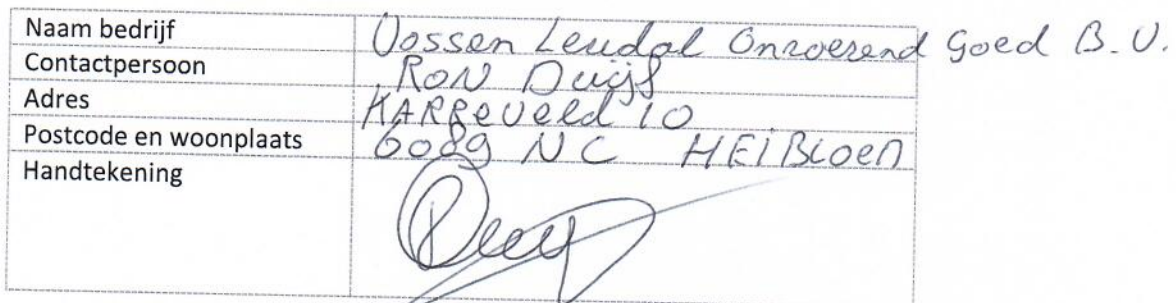 Naam bedrijf Vossen Leudal Onroerend Goed B.V.
Contactpersoon RON Duijf
Adres KARREVeld 10
Postcode en woonplaats 6089 NC HEiBLOEM
Handtekening